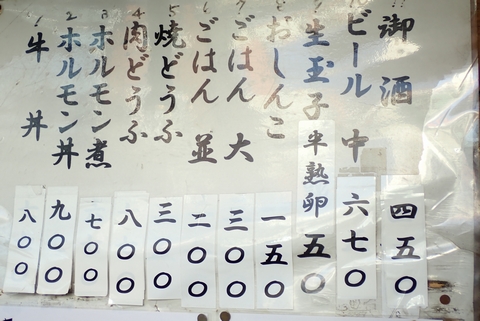 1 牛丼 八〇〇
2 ホルモン丼 九〇〇
3 ホルモン煮 七〇〇
4 肉どうふ 八〇〇
5 焼どうふ 三〇〇
ごはん 並 二〇〇
7 ごはん 大 三〇〇
8 おしんこ 一五〇
生玉子 半熟卵 五〇
ビール 中 六七〇
御酒 四五〇